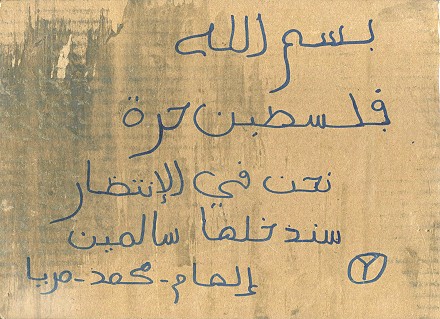 بسم الله
فلسطين حرة
نحن في الإنتظار
سندخلها سالمين
إلهام - محمد - مريا
٢